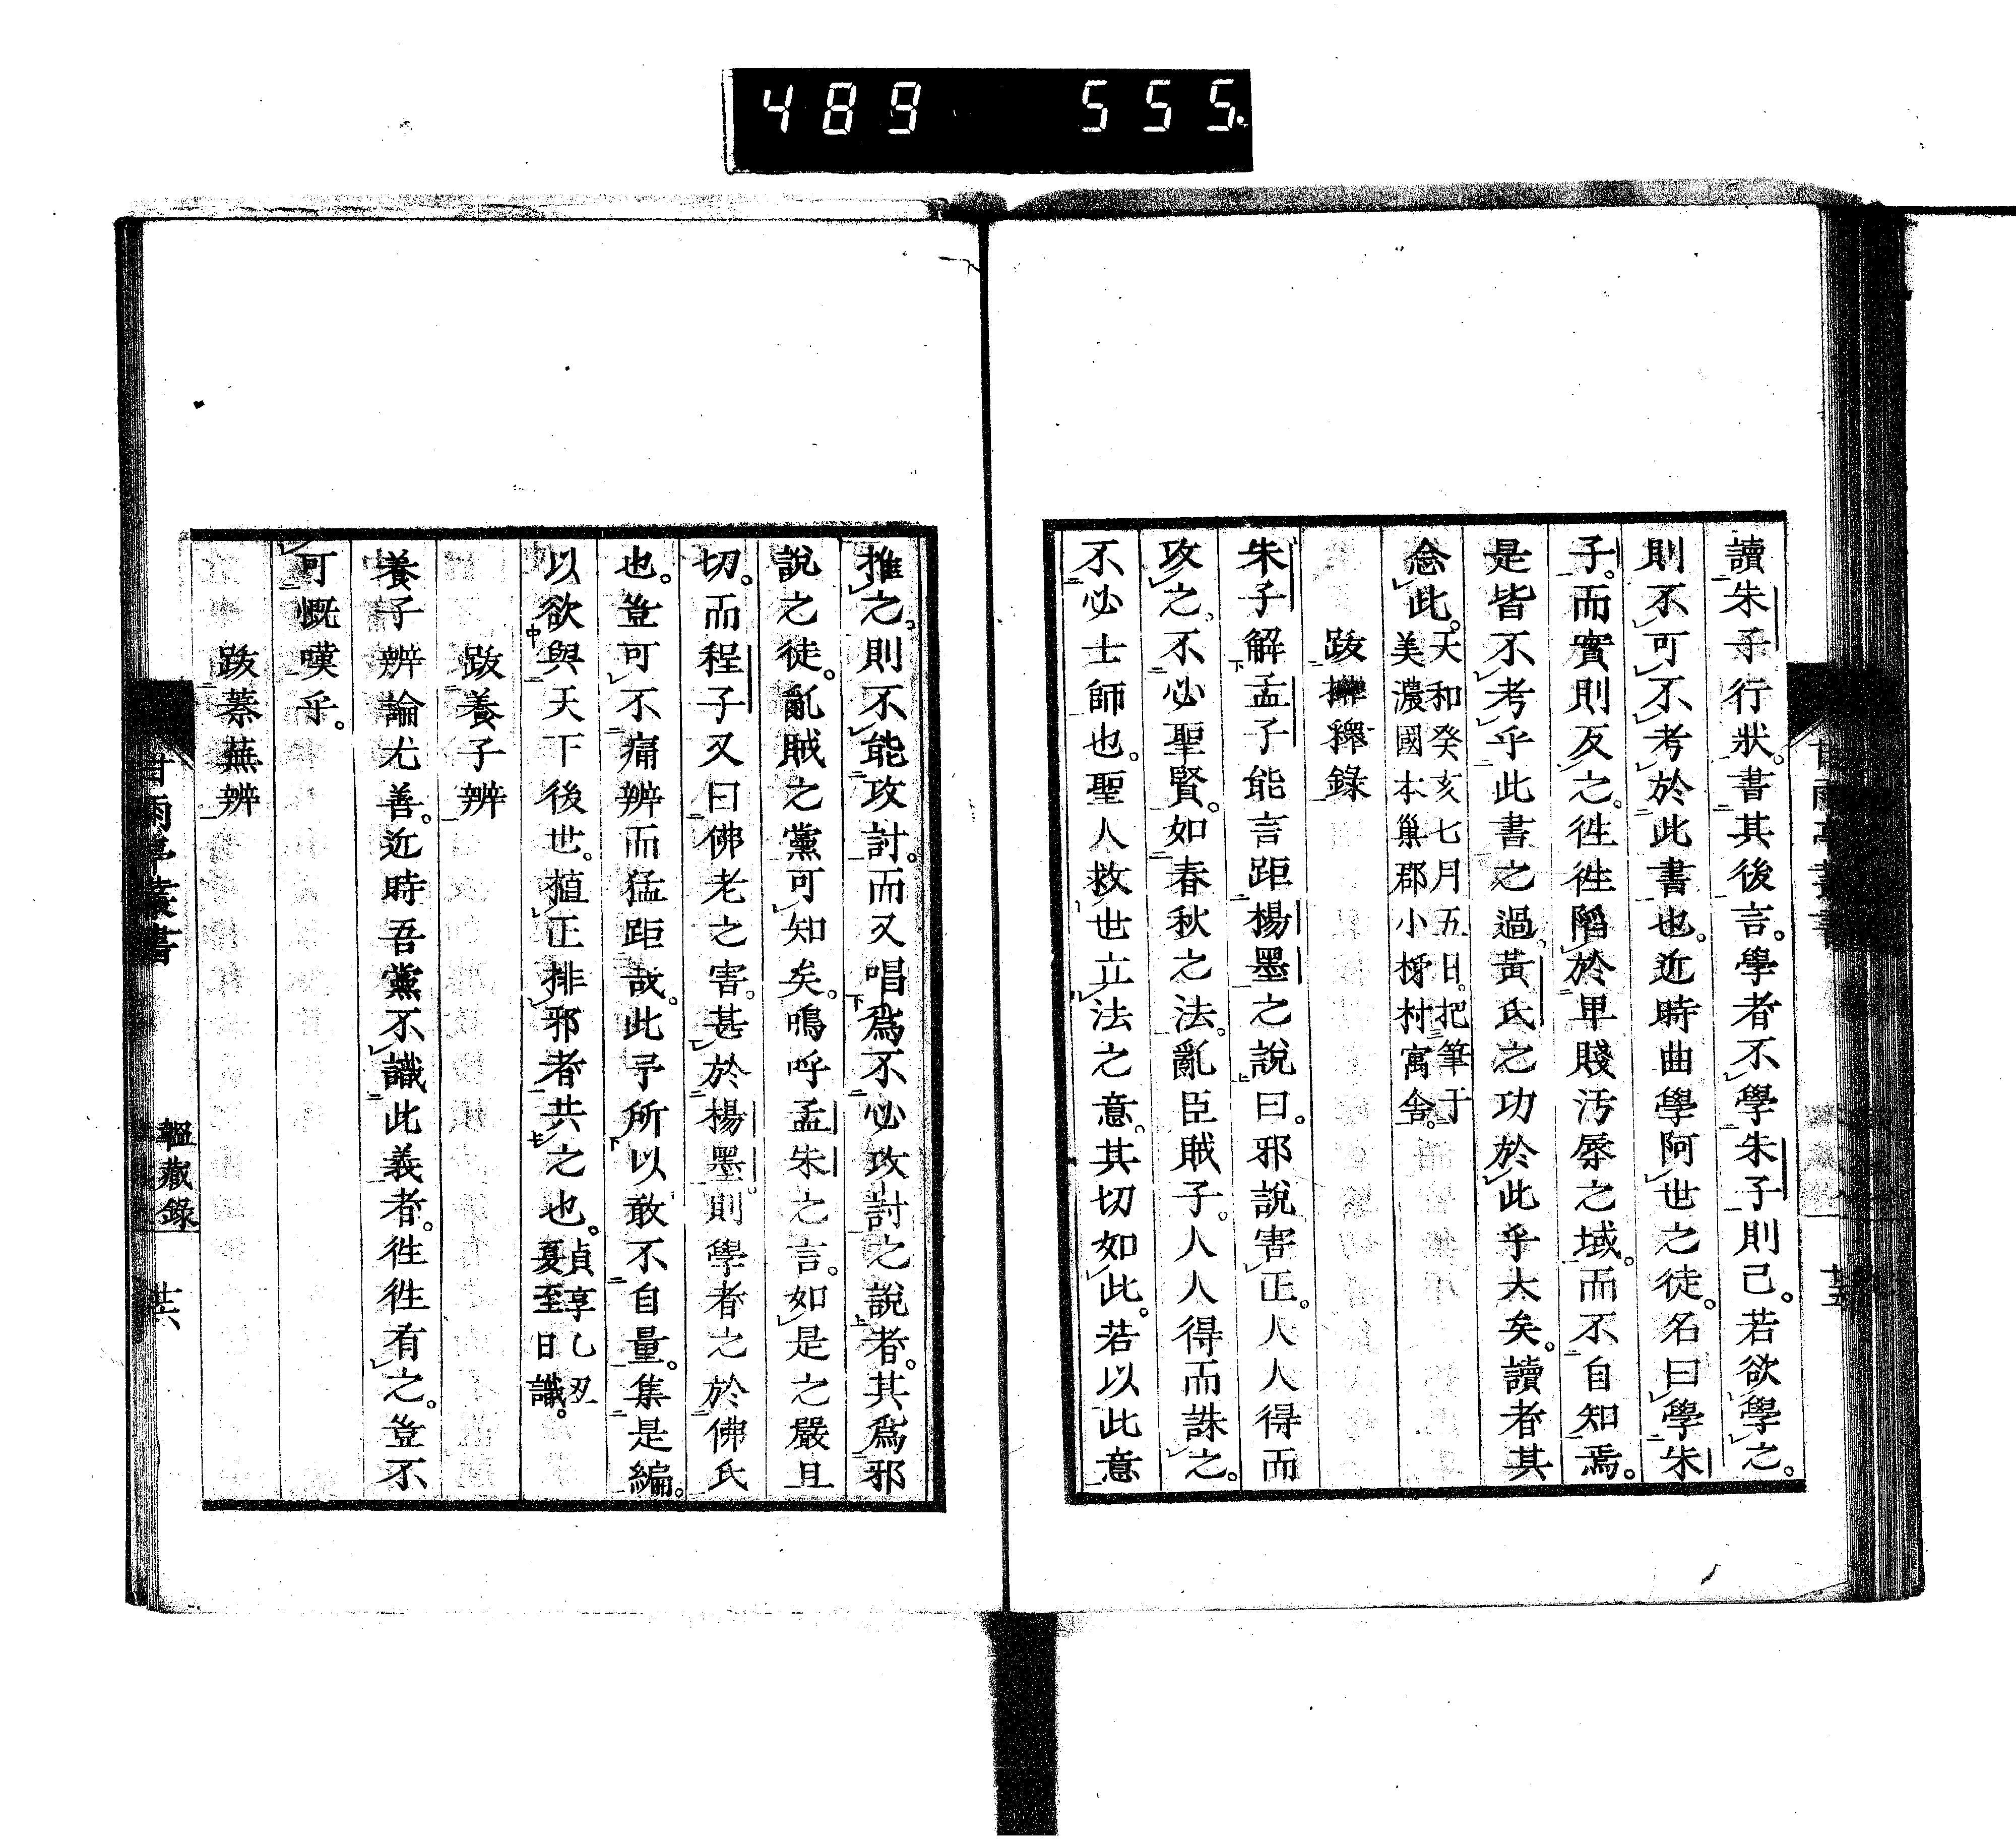 489 555.
讀朱子行狀。書其後言。學者不學朱子則已。若欲學之。
則不可不考於此書也。近時曲學阿世之徒。名曰學朱
子。而實則反之。徃徃陷於卑賤汚辱之域。而不自知焉。
是皆不考乎此書之過、黃氏之功於此乎大矣。讀者其
念此。天和癸亥七月五日。把筆于
美濃國本巢郡小柿村寓舍。
跋攡釋錄
朱子解孟子能言距楊墨之說曰。邪說害正。人人得而
攻之、不必聖賢。如春秋之法。亂臣賊子。人人得而誅之。
不必士師也。聖人救世立法之意。其切如此。若以此意
推之、則不能攻討。而又唱爲不必攻討之說者。其爲邪
說之徒。亂賊之黨可知矣。嗚呼孟朱之言。如是之嚴且
切。而程子又曰佛老之害。甚於楊墨。則學者之於佛氏
也。豈可不痛辨而猛距哉。此予所以敢不自量。集是編。
以欲與天下後世。植正排邪者共之也。貞享乙丑
夏至日識。
跋養子辨
養子辨論尤善。近時吾黨不識此義者。徃徃有之。豈不
可慨嘆乎。
跋蓁蕪辨
甘雨亭叢書
韞藏錄
廿六